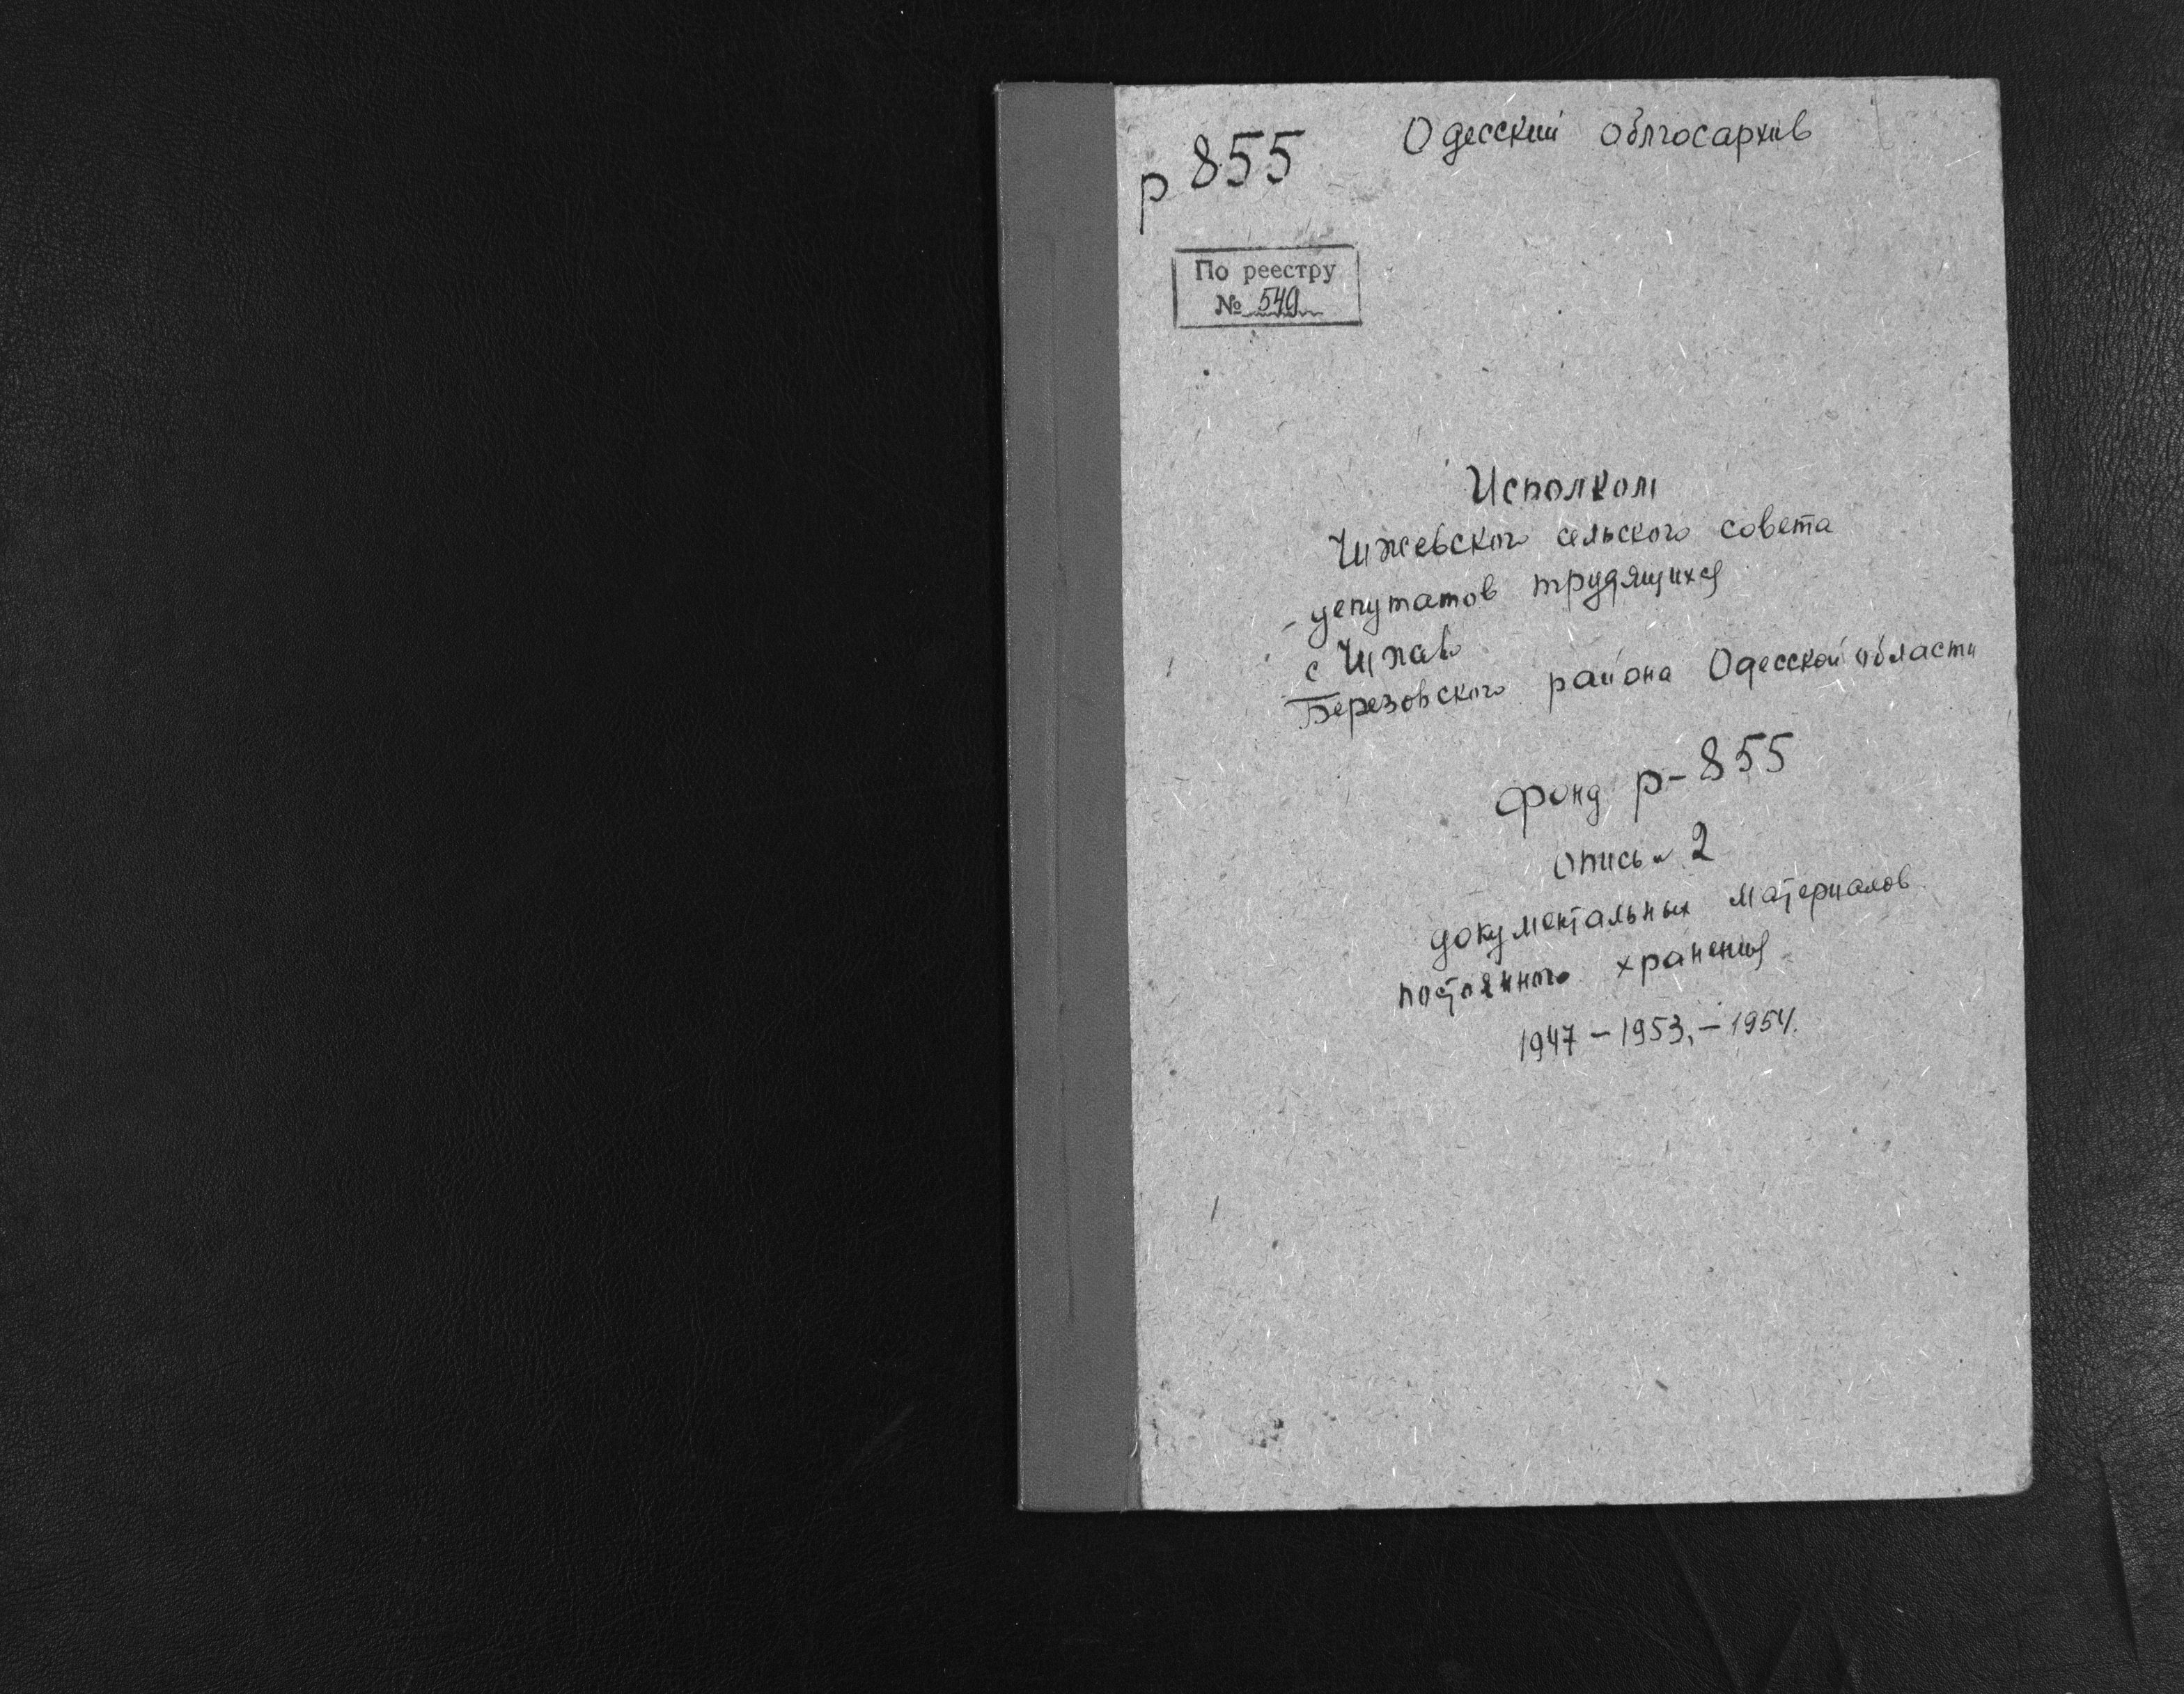 р 855 Одесский облгосархив
По реестру
№ 549
Исполком
Чижевского сельского совета
депутатов трудящихся
с Чижево
Березовского района Одесской области
Фонд р-855
Опись № 2
документальных материалов
постоянного хранения
1947 – 1953, – 1954.